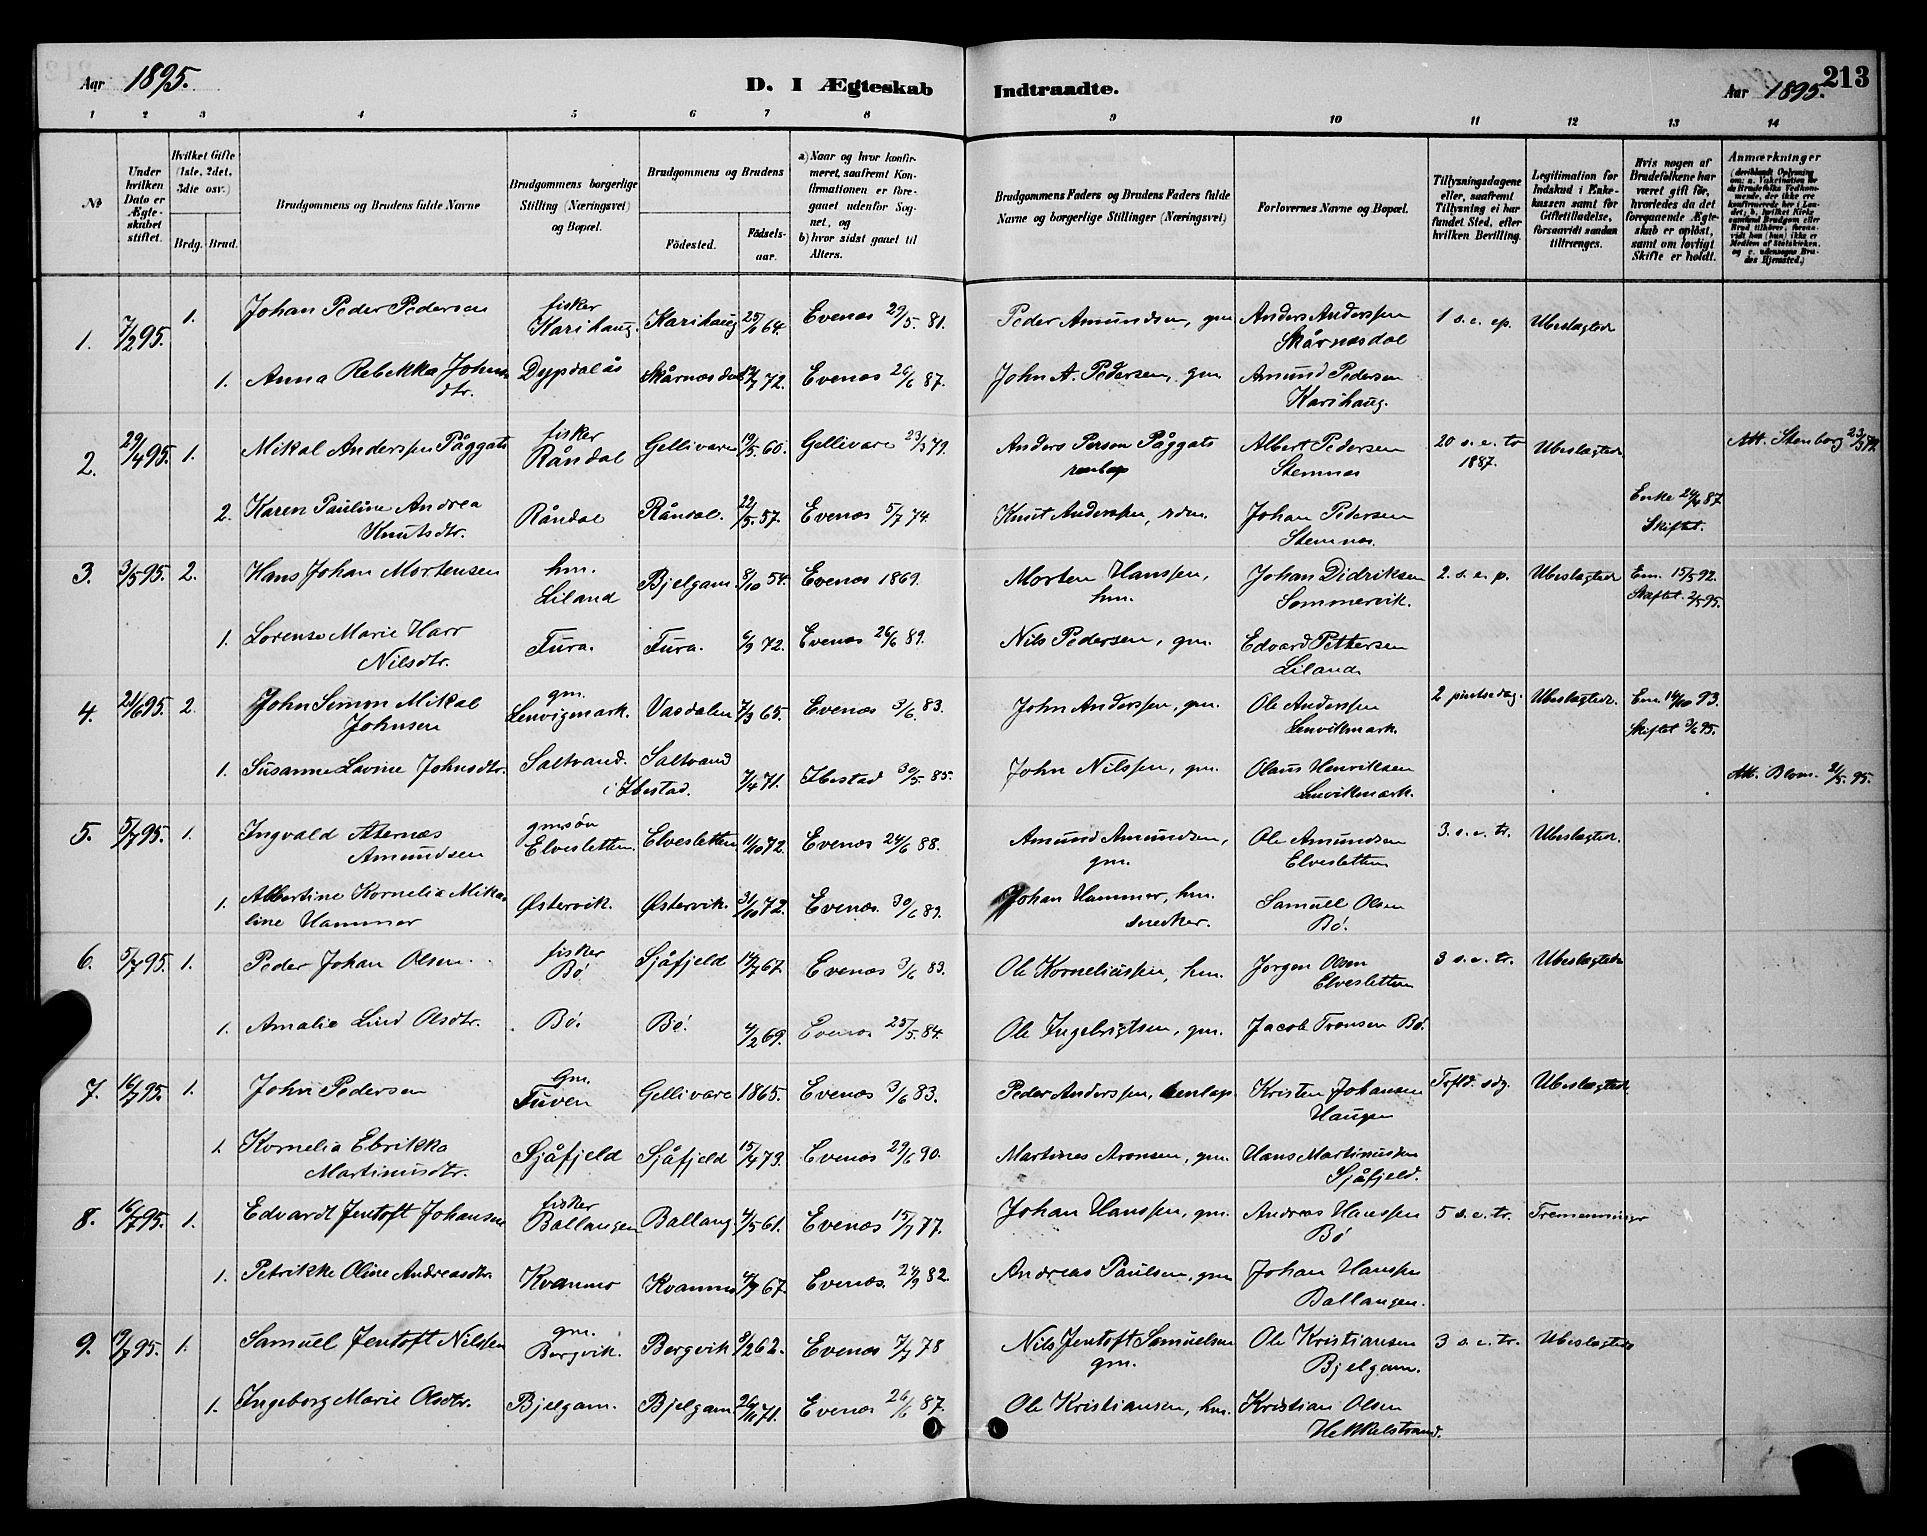 Aar 1895. D. I Ægteskab Indtraadte. Aar 1895. 213
1 2 3 4 5 6 7 8 9 10 11 12 13 14
No
Under hvilken Dato er Ægteskabet stiftet.
Hvilket Gifte (1ste, 2det, 3die osv.)
Brdg. Brud.
Brudgommens og Brudens fulde Navne
Brudgommens borgerlige Stilling (Næringsvei) og Bopæl.
Brudgommens og Brudens
Födested. Födselsaar.
a) Naar og hvor konfirmeret, saafremt Konfirmationen er foregaaet udenfor Sognet, og
b) hvor sidst gaaet til Alters.
Brudgommens Faders og Brudens Faders fulde Navne og borgerlige Stillinger (Næringsvei)
Forlovernes Navne og Bopæl.
Tillysningsdagene eller, saafremt Tillysning ei har fundet Sted, efter hvilken Bevilling.
Legitimation for Indskud i Enkekassen samt for Giftetilladelse, forsaavidt saadan tiltrænges.
Hvis nogen af Brudefolkene har været gift før, hvorledes da det foregaaende Ægteskab er oplöst, samt om lovligt Skifte er holdt.
Anmærkninger
1. 7/2 95. 1. Johan Peder Pedersen fisker Karihaug. Karihaug 64. Evenæs 29/5. 81. Peder Amundsen, gm. Anders Anderssen Skårnæsdal 1 s. e. ep. Ubeslægtede
1. Anna Rebekka Johnsdtr. Dypdalås Skårnæsdal 72. Evenæs 26/6 87. John A. Pedersen, gm. Amund Pedersen Karihaug.
2. 29/4 95. 1. Mikal Anderssen Påggats fisker Råndal Gellivare 19/5. 60. Gellivare 23/3 79. Anders Person Påggats renlap Albert Pedersen Stemnes 20 s. e. tr 1887. Ubeslægtede Att. Stenborg 23/3 79.
2. Karen Pauline Andrea Knutsdtr. Råndal Råndal. 22/5. 57. Evenæs 5/7 74. Knut Anderssen, rdm. Johan Pedersen Stemnes. Enke 87 Skiftet.
3. 3/5 95. 2. Hans Johan Mortensen hm. Liland Bjelgam. 8/10 54. Evenæs 1869. Morten Hanssen, hm. Johan Didriksen Sommervik. 2. s. e. p. Ubeslægtede Em. 15/5 92. Skiftet 2/5 95.
1. Lorense Marie Harr Nilsdtr. Tura. Tura. 6/9 72. Evenæs 26/6 89. Nils Pedersen, gm. Edvard Pettersen Liland
4. 21/6 95. 2. John Simon Mikal Johnsen gm. Lenvigmark. Vasdalen 7/3 65. Evenæs 3/6. 83. John Anderssen, gm. Ole Anderssen Lenvikmark. 2 pintsedag. Ubeslægtede. Em. 14/10 93. Skiftet 3/6 95.
1. Susanne Lavine Johnsdtr. Saltvand. i Ibestad. Saltvand 7/4 71. Ibestad 30/5. 85. John Nilssen, gm. Olaus Henriksen Lenvikmark. Att. Blom. 21/5. 95.
5. 5/7 95. 1. Ingvald Aternæs Amundsen gmsøn Elvesletten. Elvesletten 11/10 72. Evenæs 24/6 88. Amund Amundsen, gm. Ole Amundsen Elvesletten 3. s. e. tr. Ubeslægtede.
1. Albertine Kornelia Mikaline Hammer Østervik. Østervik. 31/10 72. Evenæs. 30/6 89. Johan Hammer, hm. snedker. Samuel Olsen Bø.
6. 5/7 95. 1. Peder Johan Olsen. fisker Bø Sjåfjeld 14/7 67. Evenæs 3/6 83. Ole Korneliussen, hm. Jørgen Olsen Elvesletten 3 s. e. tr. Ubeslægtede
1. Amalie Lind Olsdtr. Bø. Bø. 4/2 69. Evenæs 25/5. 84. Ole Ingebrigtsen, gm. Jacob Tronsen Bø.
7. 16/7 95. 1. John Pedersen gm. Tuven Gellivare 1865. Evenæs 3/6 83. Peder Anderssen, renlap. Kristen Johansen Haugen Trfld. sdg. Ubeslægtede.
1. Kornelia Ebrikka Martinusdtr. Sjåfjeld Sjåfjeld 15/4 73. Evenæs 29/6 90. Martines Aronsen, gm. Hans Martinussen Sjåfjeld.
8. 16/7 95. 1. Edvardt Jentoft Johansen fisker Ballangen Ballang. 4/5 61. Evenæs 15/7 77. Johan Hanssen, gm. Andreas Hanssen Bø 5 s. e. tr. Tremenninger
1. Petrikke Oline Andreasdtr. Kvanmo Kvanmo 67. Evenæs. 82. Andreas Paulsen, gm Johan Hanssen Ballangen.
9. 19/7 95. 1. Samuel Jentoft Nilssen gm. Bergvik. Bergvik 8/2 62. Evenæs 7/7 78 Nils Jentoft Samuelsen gm. Ole Kristiansen Bjelgam. 3 s. e. tr. Ubeslægtede
1. Ingeborg Marie Olsdtr. Bjelgam. Bjelgam 26/11 71. Evenæs 26/6 87. Ole Kristiansen, hm. Kristian Olsen Hekkelstrand.